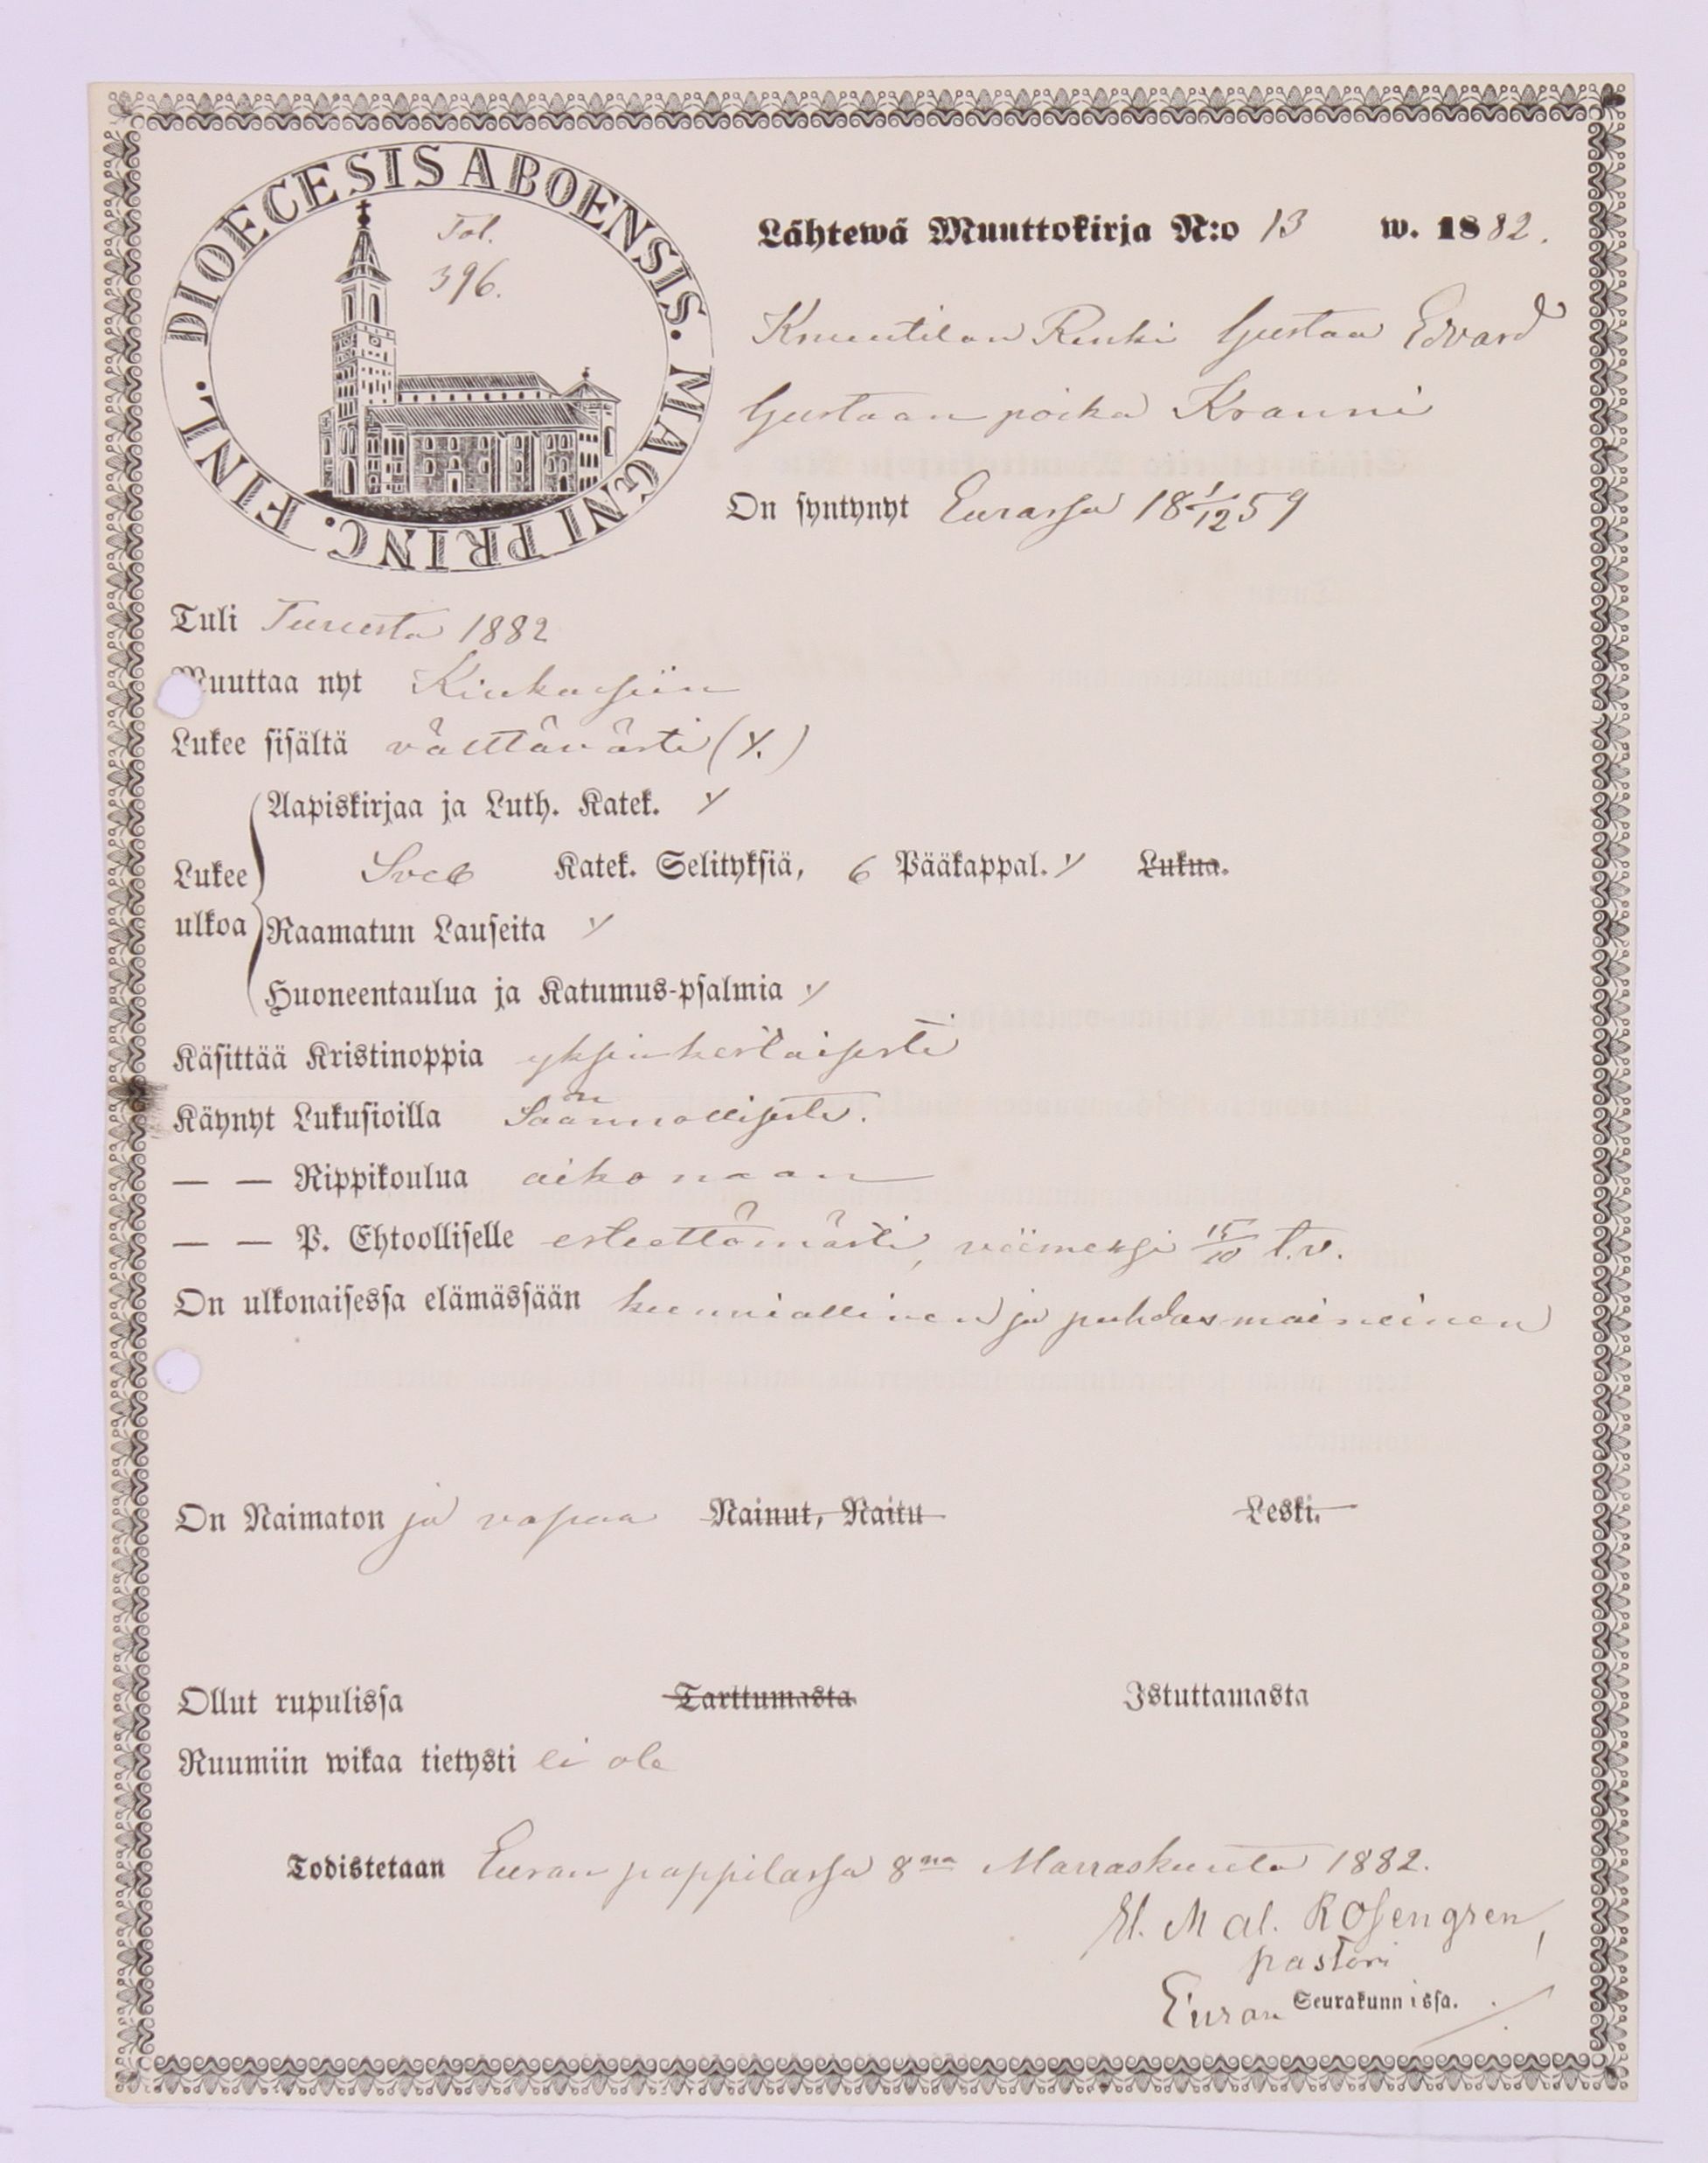 DIOECESIS ABOENSIS. MAGNI PRINC. FINL.
Fol.
396.
Lähtewä Muuttokirja N:o 13 w. 1882.
Knuutilan Renki Gustaa Edvard
Gustaan poika Kranni
On syntynyt Eurassa 18 1/12 59
Tuli Turusta 1882
Muuttaa nyt Kiukaisiin
Lukee sisältä välttävästi (y.)
Lukee ulkoa
Aapiskirjaa ja Luth. Katek. y
Sveb Katek. Selityksiä, 6 Pääkappal. y Lukua.
Raamatun Lauseita y
Huoneentaulua ja Katumus-psalmia y
Käsittää Kristinoppia yksinkertaisesti
Käynyt Lukusioilla Säännöllisesti.
— — Rippikoulua aikanaan
— — P. Ehtoolliselle esteettömästi, viimeksi 15/10 t.v.
On ulkonaisessa elämässään kunniallinen ja puhdasmaineinen
On Naimaton ja vapaa Nainut, Naitu Leski.
Ollut rupulissa Tarttumasta Istuttamasta
Ruumiin wikaa tietysti ei ole
Todistetaan Euran pappilassa 8na Marraskuuta 1882.
El. Mal. Rosengren,
pastori
Euran Seurakunnissa.